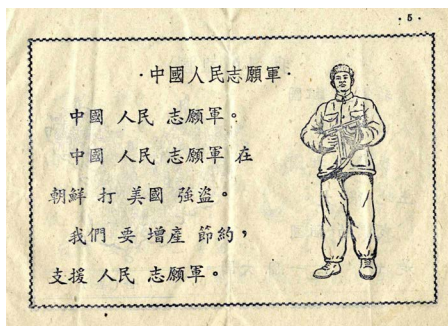 ·5·
·中國人民志願軍·
中國 人民 志願軍。
中國 人民 志願軍 在
朝鮮 打 美國 強盜。
我們 要 增產 節約，
支援 人民 志願軍。